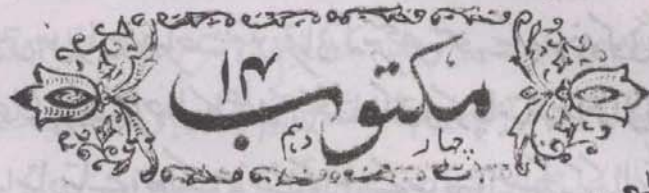 مکتوب ۱۴
چہار دہم